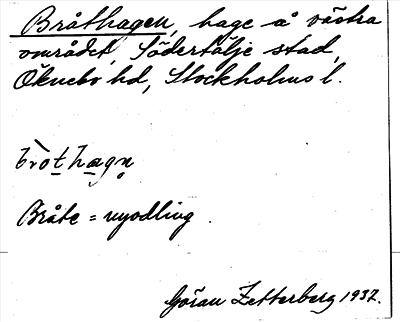 Bråthagen, hage å västra
området, Södertälje stad,
Öknebo hd, Stockholms l.
bròthagn̥
Bråte = nyodling.
Göran Zetterberg 1937.